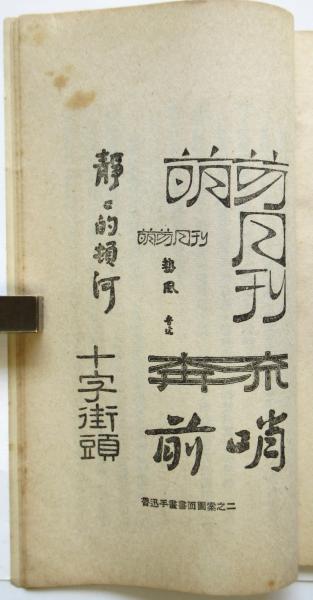 萌芽
月
刊
萌芽月刊
熱風
魯迅
靜〻的頓河
奔流
前哨
十字街頭
魯迅手畫書面圖案之二